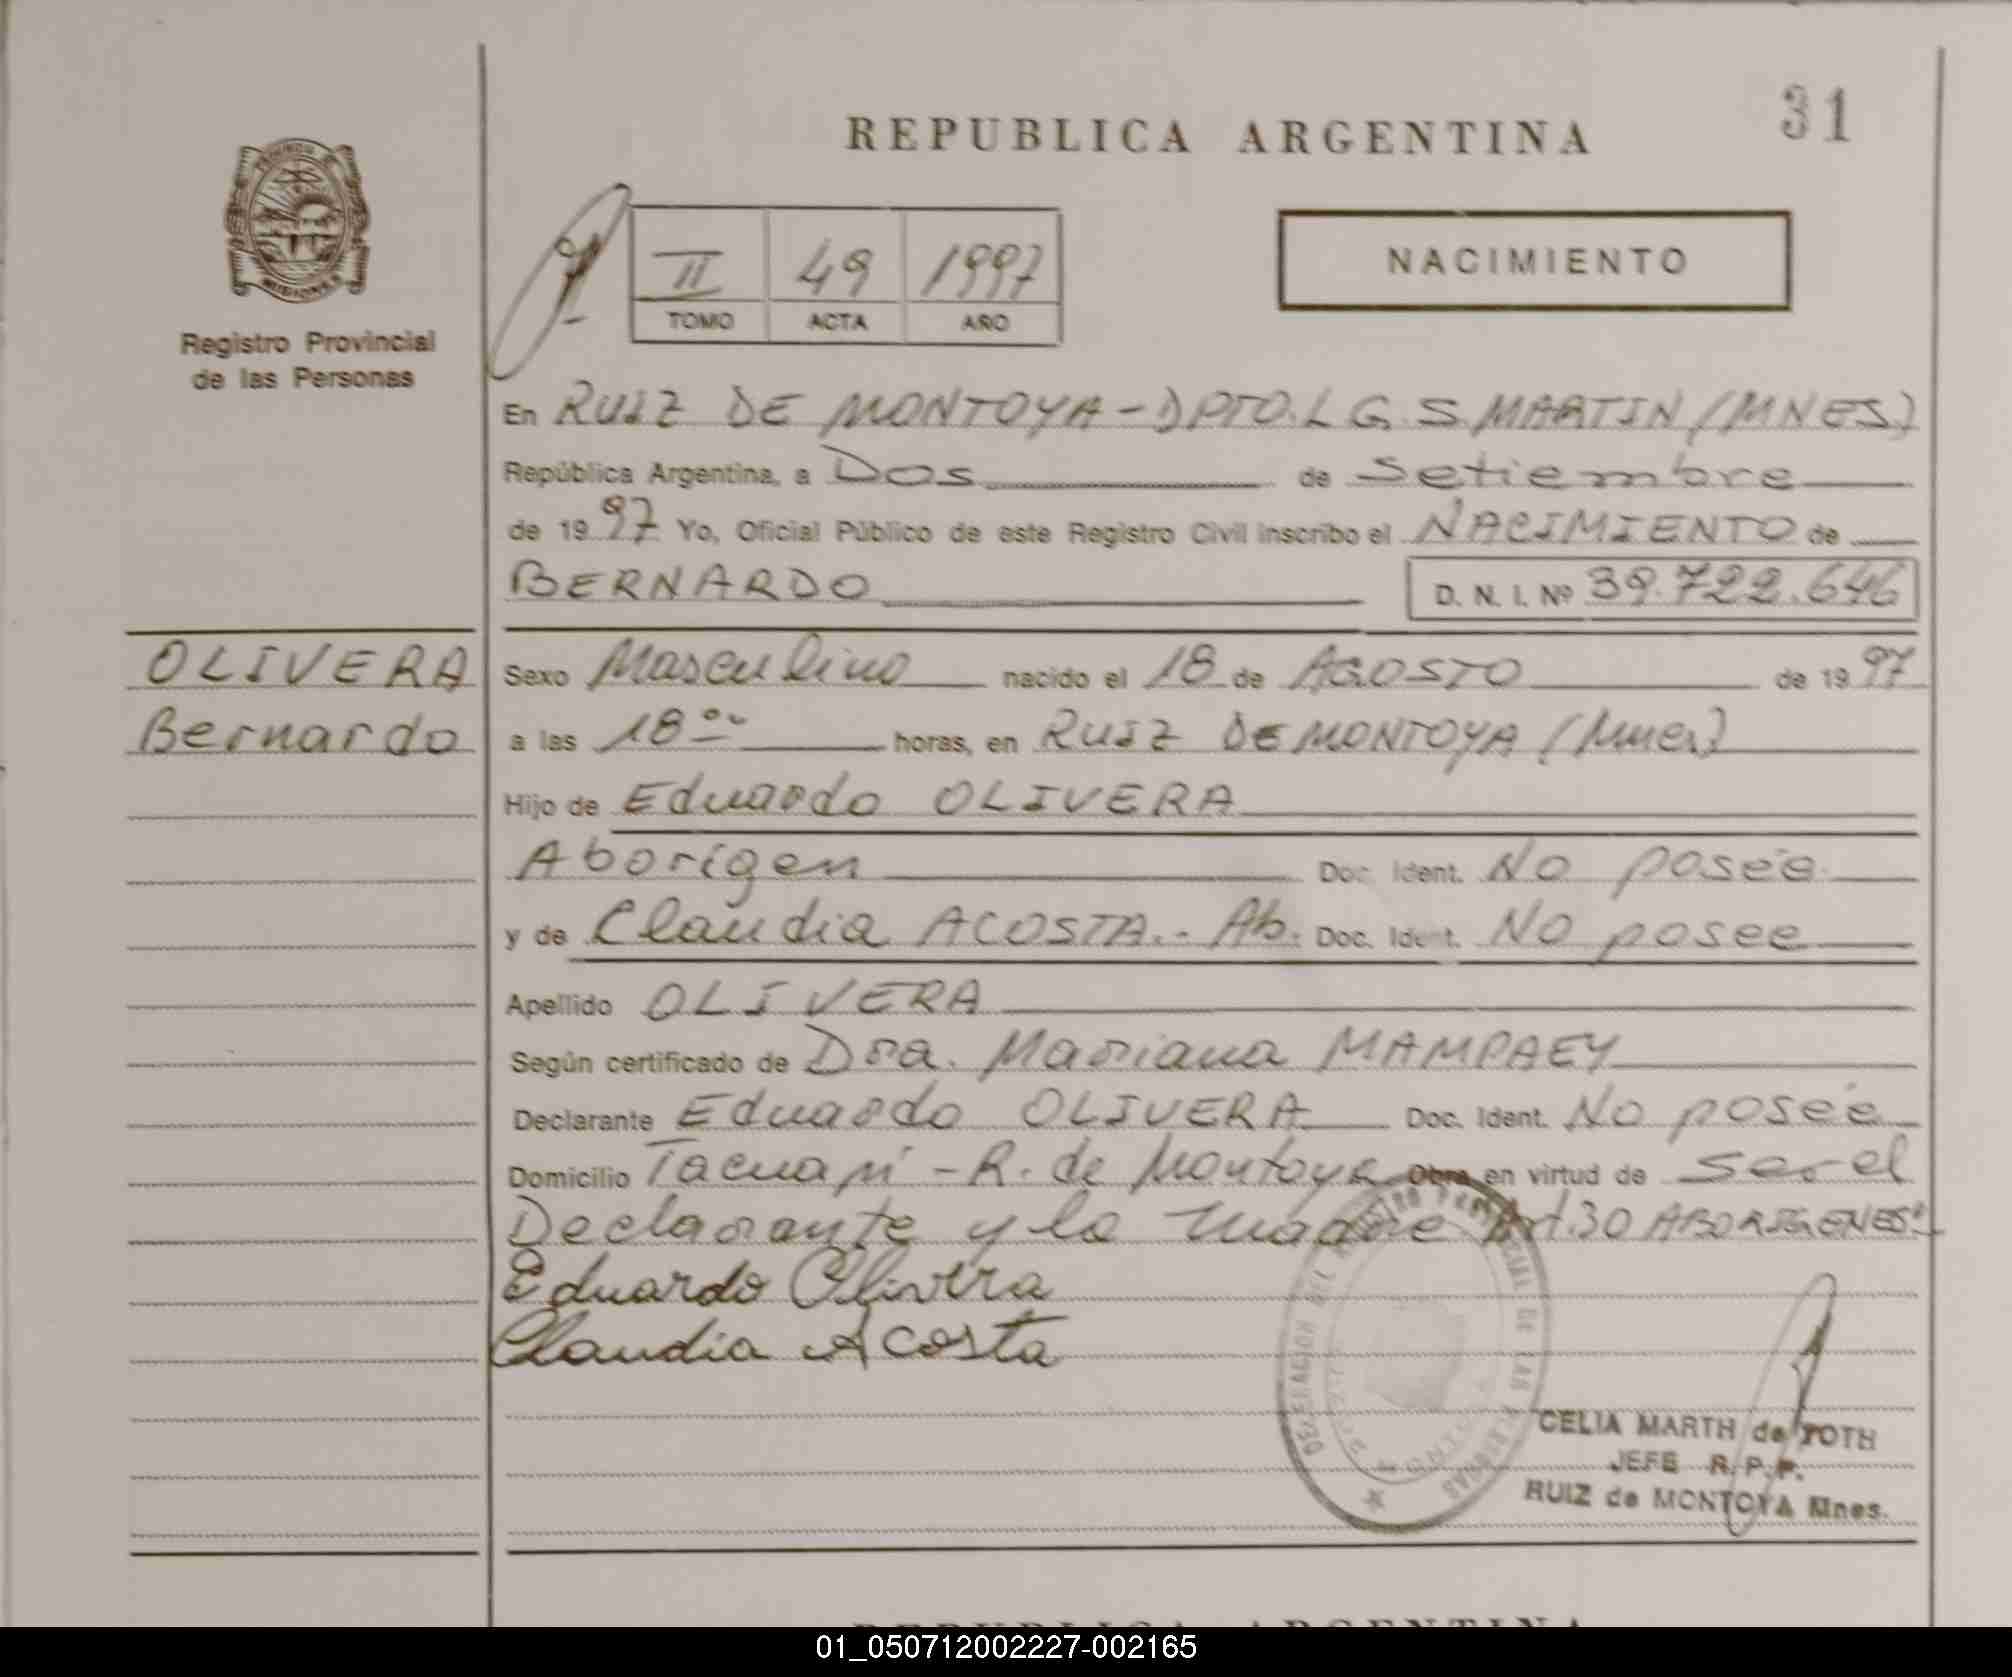 31
REPUBLICA ARGENTINA
II 49 1997
TOMO ACTA AÑO
NACIMIENTO
Registro Provincial
de las Personas
En RUIZ DE MONTOYA - DPTO. L G. S. MARTIN (MNES)
República Argentina, a Dos de Setiembre
de 1997 Yo, Oficial Público de este Registro Civil inscribo el NACIMIENTO de
BERNARDO D. N. I. Nº 39.722.646
OLIVERA
Bernardo
Sexo Masculino nacido el 18 de AGOSTO de 1997
a las 18 horas, en RUIZ DE MONTOYA (Mnes)
Hijo de Eduardo OLIVERA
Aborigen Doc. Ident. No posée
y de Claudia ACOSTA.- Ab. Doc. Ident. No posee
Apellido OLIVERA
Según certificado de Dra. Mariana MAMPAEY
Declarante Eduardo OLIVERA Doc. Ident. No posée
Domicilio Tacuapí - R. de Montoya Obra en virtud de ser el
Declarante y la madre Art.30 ABORIGENES"
Eduardo Olivera
Claudia Acosta
CELIA MARTH de TOTH
JEFE R. P. P.
RUIZ de MONTOYA Mnes.
REPUBLICA ARGENTINA
01_050712002227-002165